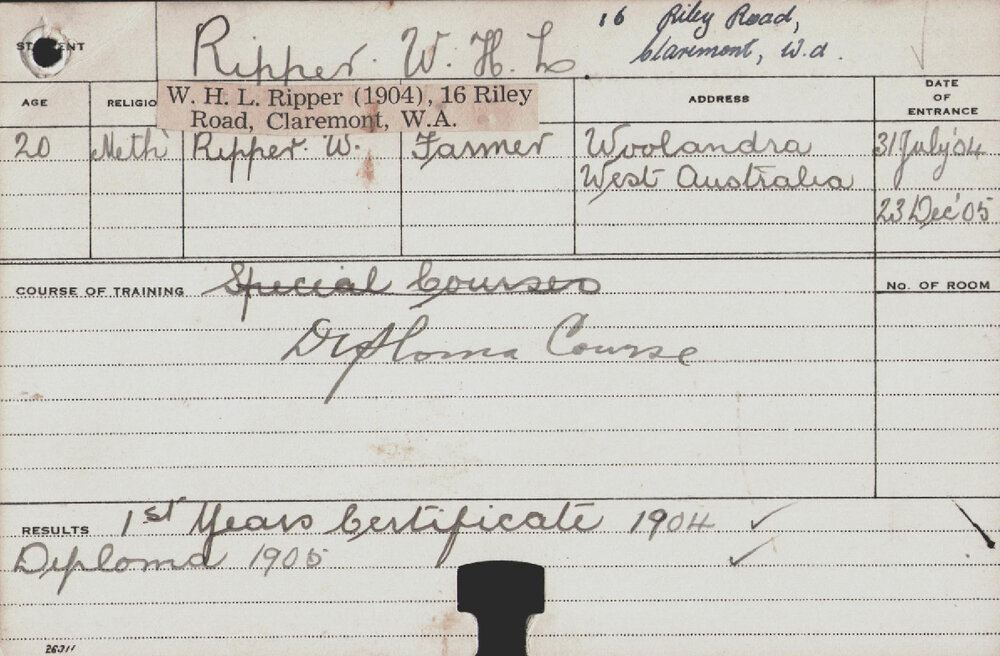 16 Riley Road,
Claremont, W.A.
STUDENT Ripper. W. H. L.
W. H. L. Ripper (1904), 16 Riley
Road, Claremont, W.A.
AGE RELIGIO ADDRESS DATE OF ENTRANCE
20 Meth' Ripper. W. Farmer Woolandra 31 July '04
West Australia
23 Dec '05
COURSE OF TRAINING Special Courses No. OF ROOM
Diploma Course
RESULTS 1st Years Certificate 1904 ✓
Diploma 1905 ✓